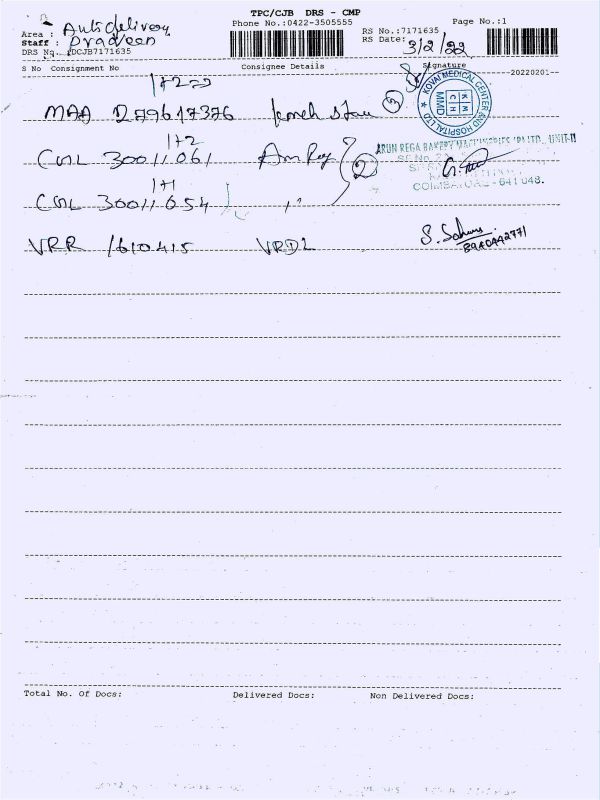 TPC/CJB DRS - CMP
Phone No.:0422-3505555
Page No.:1
Area : Auto delivery
Staff : Pradeep
DRS No.: DCJB7171635
RS No.:7171635
RS Date: 3/2/22
S No Consignment No Consignee Details Signature
20220201
1+2
MAA 279617376
3
KOVAI MEDICAL CENTER AND HOSPITAL LTD
KMCH
MMD
1+2
COL 30011061
2
ARUN REGA BAKERY MACHINERIES (P) LTD., UNIT-II
COIMBATORE - 641 048.
1+1
COL 30011054 ,,
VRR 1610415 VRDL
8940442771
Total No. Of Docs: Delivered Docs: Non Delivered Docs: